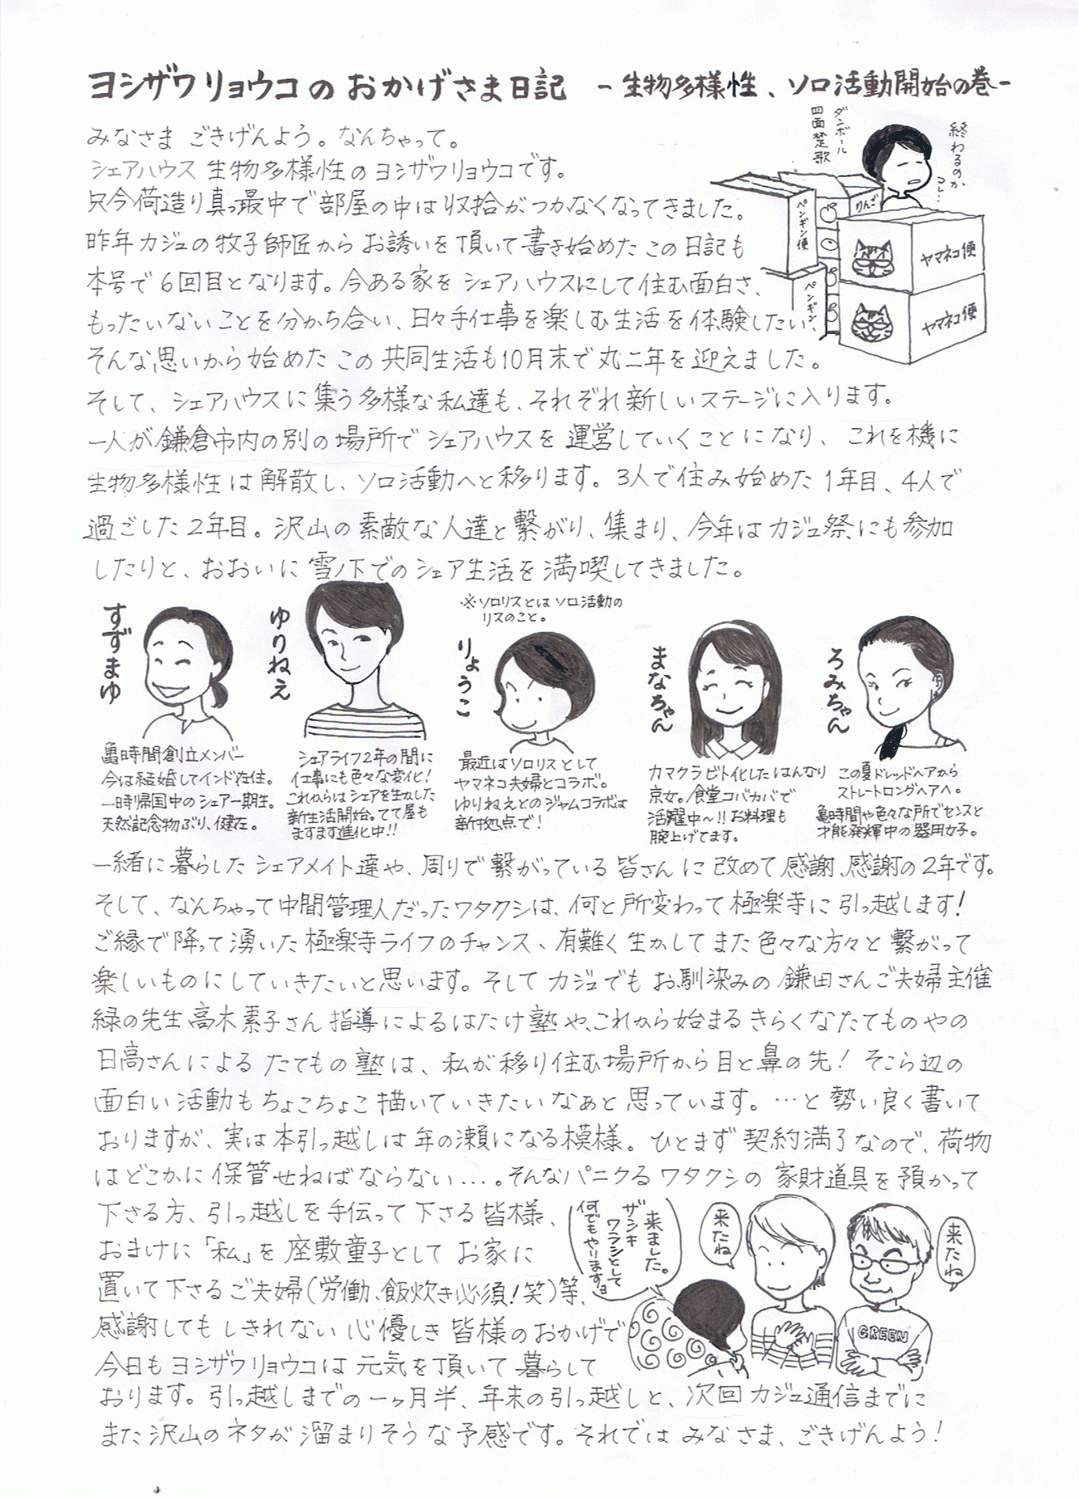 ヨシザワリョウコの おかげさま日記 －生物多様性、ソロ活動開始の巻－
みなさま ごきげんよう。なんちゃって。
シェアハウス 生物多様性の ヨシザワリョウコです。
只今荷造り真っ最中で部屋の中は収拾がつかなくなってきました。
昨年カジュの牧子師匠からお誘いを頂いて書き始めたこの日記も
本号で6回目となります。今ある家をシェアハウスにして住む面白さ、
もったいないことを分かち合い、日々手仕事を楽しむ生活を体験したい、
そんな思いから始めたこの共同生活も10月末で丸二年を迎えました。
ダンボール
四面楚歌
終わるのか
コレ…
ペンギン便
りんご
ヤマネコ便
ペンギン
ヤマネコ便
そして、シェアハウスに集う多様な私達も、それぞれ新しいステージに入ります。
一人が鎌倉市内の別の場所でシェアハウスを運営していくことになり、これを機に
生物多様性は解散し、ソロ活動へと移ります。3人で住み始めた1年目、4人で
過ごした2年目。沢山の素敵な人達と繋がり、集まり、今年はカジュ祭にも参加
したりと、おおいに雪ノ下でのシェア生活を満喫してきました。
すずまゆ
亀時間創立メンバー
今は結婚してインド在住。
一時帰国中のシェア一期生。
天然記念物ぶり、健在。
ゆりねえ
シェアライフ2年の間に
仕事にも色々な変化！
これからはシェアを生かした
新生活開始。てて屋も
ますます進化中！！
※ソロリスとはソロ活動の
リスのこと。
りょうこ
最近はソロリスとして
ヤマネコ夫婦とコラボ。
ゆりねえとのジャムコラボは
新拠点で！
まなちゃん
カマクラビト化したはんなり
京女。食堂コバカバで
活躍中〜！！お料理も
腕上げてます。
ろみちゃん
この夏ドレッドヘアから
ストレートロングヘアへ。
亀時間や色々な所でセンスと
才能発揮中の器用女子。
一緒に暮らしたシェアメイト達や、周りで繋がっている皆さんに改めて感謝、感謝の2年です。
そして、なんちゃって中間管理人だったワタクシは、何と所変わって極楽寺に引っ越します！
ご縁で降って湧いた極楽寺ライフのチャンス、有難く生かしてまた色々な方々と繋がって
楽しいものにしていきたいと思います。そしてカジュでもお馴染みの鎌田さんご夫婦主催
緑の先生高木素子さん指導によるはたけ塾や、これから始まるきらくなたてものやの
日高さんによるたてもの塾は、私が移り住む場所から目と鼻の先！そこら辺の
面白い活動もちょこちょこ描いていきたいなぁと思っています。…と勢い良く書いて
おりますが、実は本引っ越しは年の瀬になる模様。ひとまず契約満了なので、荷物
はどこかに保管せねばならない…。そんなパニクるワタクシの家財道具を預かって
下さる方、引っ越しを手伝って下さる皆様、
おまけに「私」を座敷童子としてお家に
置いて下さるご夫婦（労働、飯炊き必須！笑）等、
感謝してもしきれない心優しき皆様のおかげで
今日もヨシザワリョウコは元気を頂いて暮らして
おります。引っ越しまでの一ヶ月半、年末の引っ越しと、次回カジュ通信までに
また沢山のネタが溜まりそうな予感です。それではみなさま、ごきげんよう！
来ました。
ザシキ
ワラシとして
何でもやります
来たね
来たね
GREEN